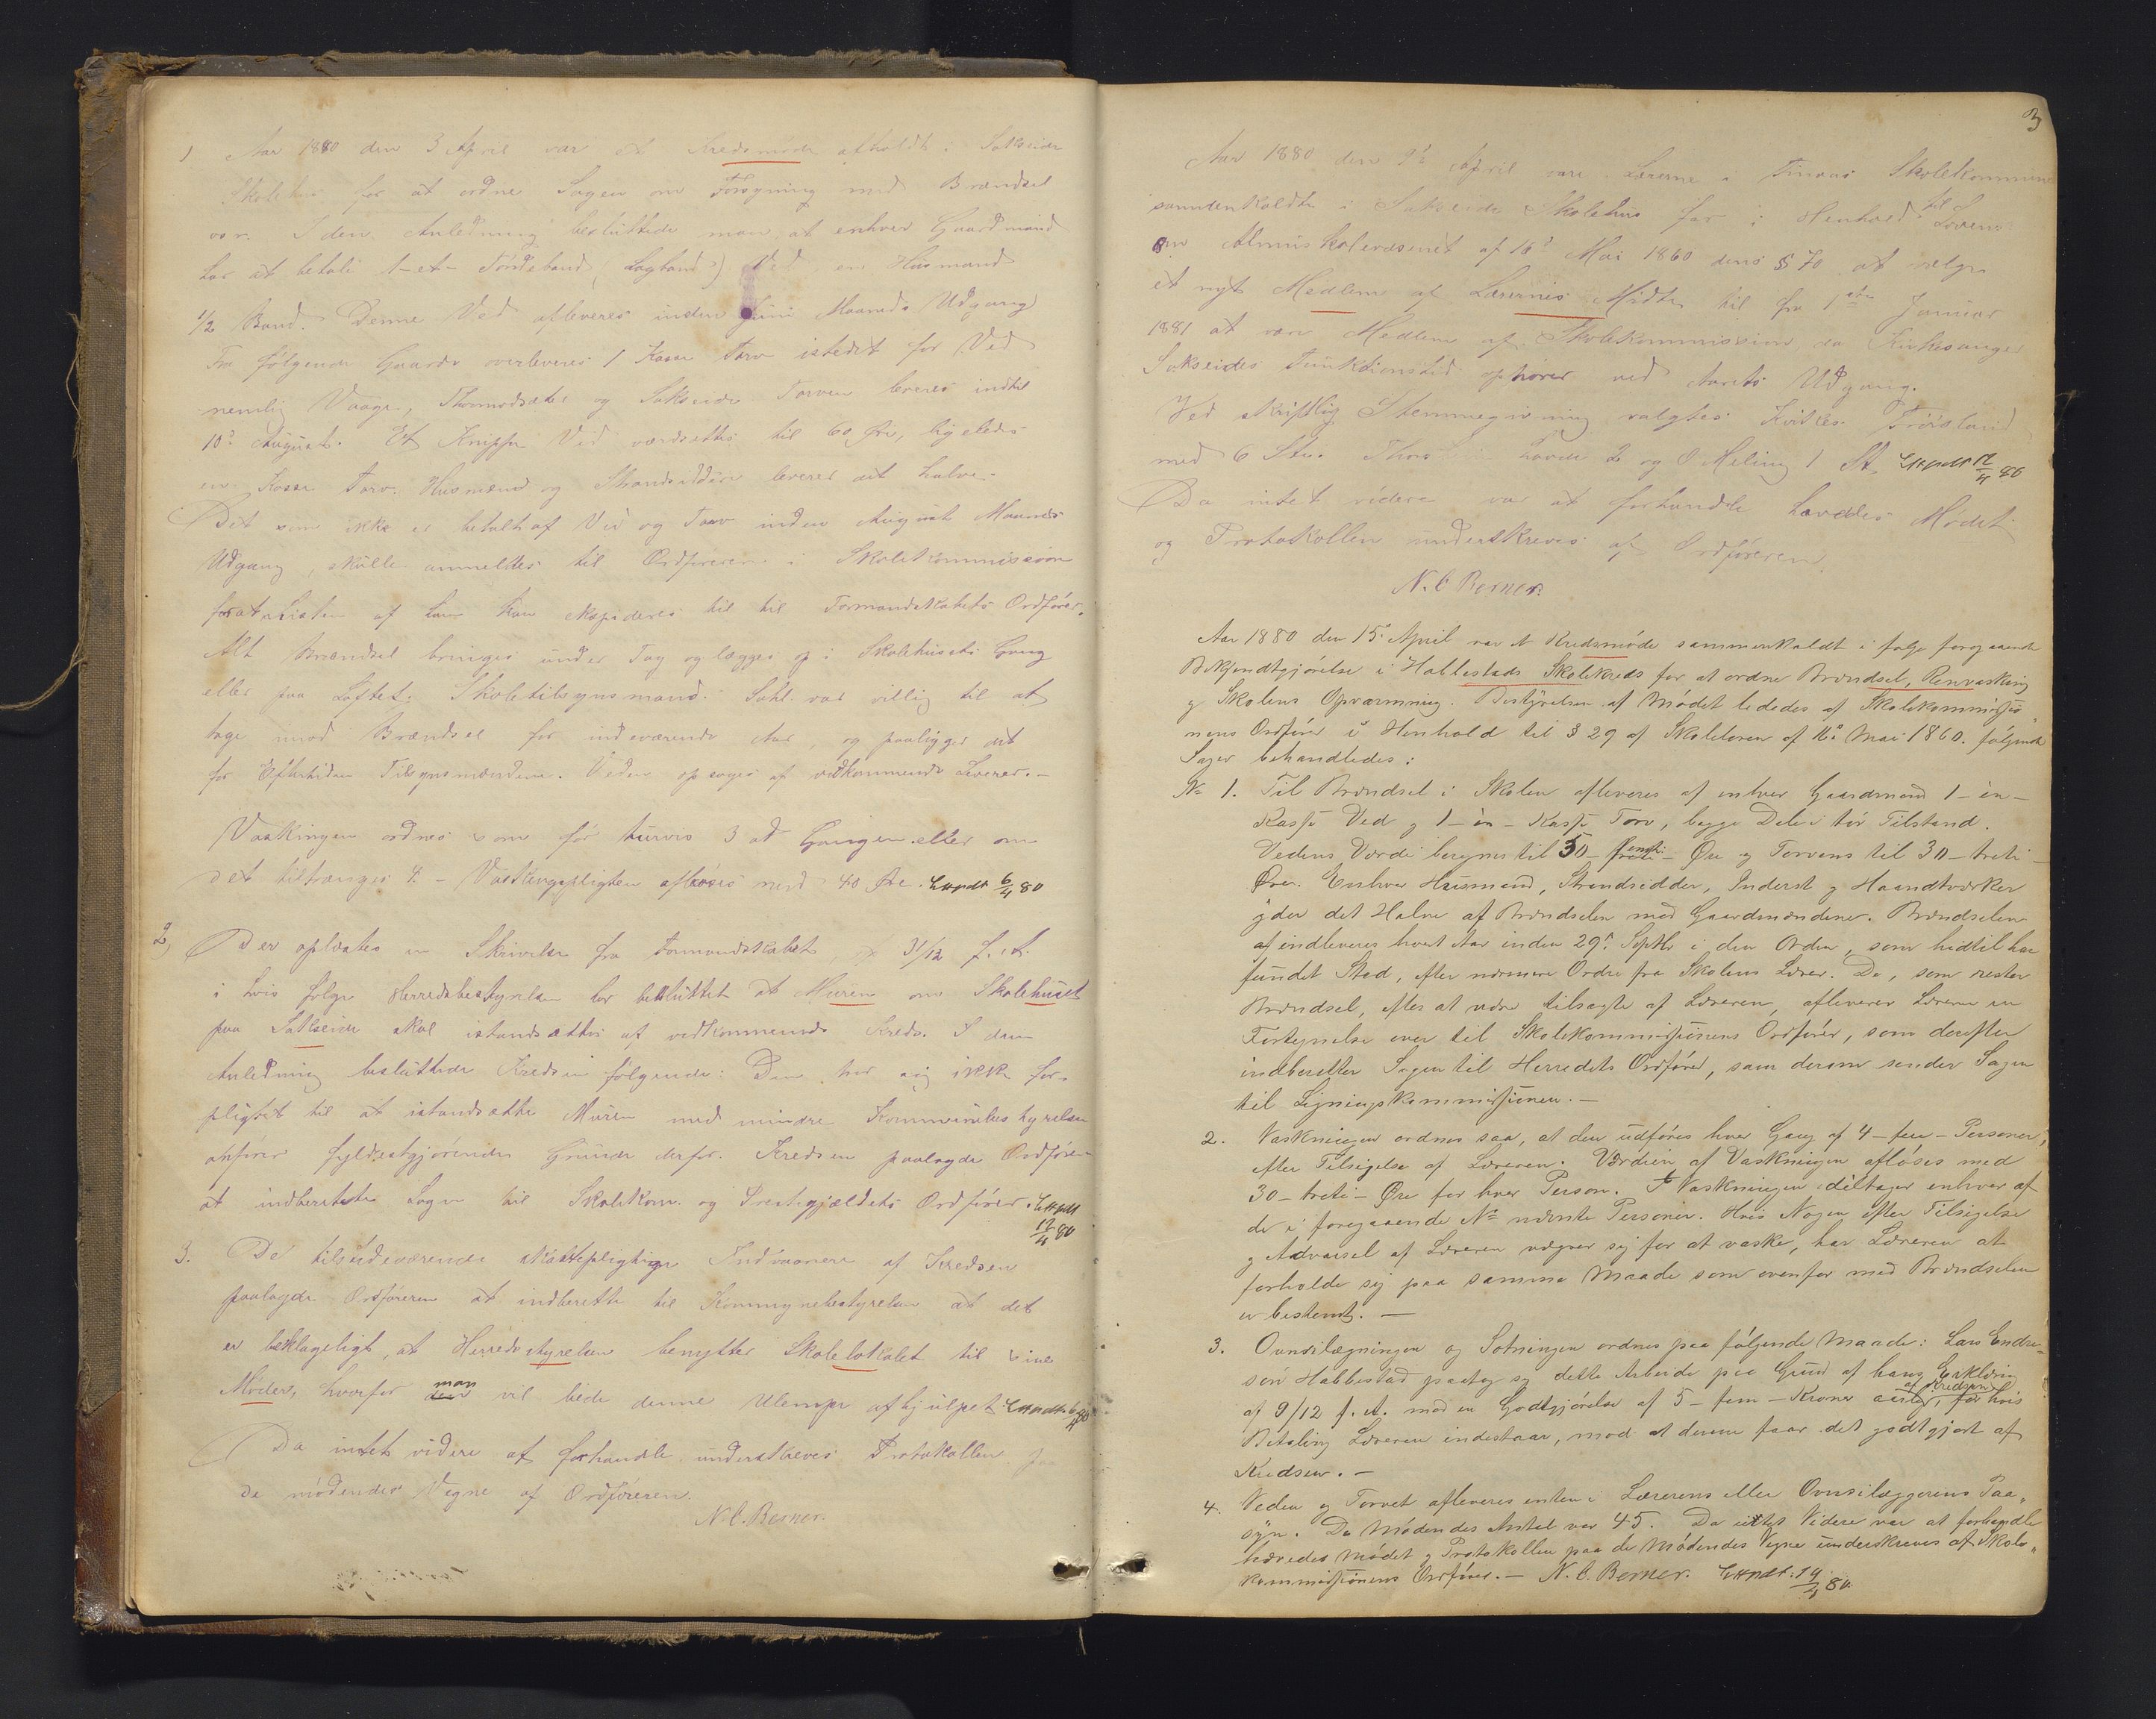 1 Aar 1880 den 3 April var et Kredsmøde afholdt i Sakseide
Skolehus for at ordne Sagen om Forsyning med Brændsel
I den Anledning besluttede man, at enhver Gaardmand
har at betale 1-et- Baand Ved en Husmand
1/2 Band. Denne Ved afleveres inden Juni Maaneds Udgang
Fra følgende Gaarde overleveres 1 Kasse Torv istedet for Ved
nemlig Vaage, Thormodsæter og Sakseide Torven leveres indtil
10de August. Et Knippe Ved værdsættes til 60 Øre, ligeledes
en Kasse Torv. Husmænd og Strandsiddere leverer det halve.
Det som ikke er betalt af Ved og Torv inden August Maaneds
Udgang, skulle anmeldes til Ordføreren i Skolekommissionen
forat Listen af ham kan expederes til til Formandskabets Ordfører.
Alt Brændsel bringes under Tag og lægges op i Skolehusets Gang
eller paa Loftet. Skoletilsynsmand var villig til at
tage imod Brændsel for indeværende Aar, og paaligger det
for Eftertiden Tilsynsmændene. Veden opsages af vedkommende Leverer.-
Vaskingen ordnes som før turvis 3 ad Gangen eller om
det tiltrænges 4. - Vaskingspligten afløses med 40 Øre. 6/4 80
2) Der oplæstes en Skrivelse fra Formandskabet 31/12 f. A.
i hvis følge Herredsbestyrelsen har besluttet at Muren om Skolehuset
paa Sakseide skal istandsættes af vedkommende Kreds. I den
Anledning besluttede Kredsen følgende: Den tror sig ikke for-
pligtet til at istandsætte Muren med mindre Kommunebestyrelsen
anfører fyldestgjørende Grunde derfor. Kredsen paalagde Ordføreren
at indberette Sagen til Skolekom. og Præstegjældets Ordfører.
12/4 80
3. De tilstedeværende Indvaanere af Kredsen
paalagde Ordføreren at indberette til Kommunebestyrelsen at det
er beklageligt, at Herredsstyrelsen benytter Skolelokalet til sine
Møder, hvorfor man vil bede denne Ulempe afhjulpet
Da intet videre at forhandle underskreves Protokollen paa
de mødendes Vegne af Ordføreren.
N. C. Berner.
3
Aar 1880 den April vare Lærerne i Finaas Skolekommune
sammenkaldte i Sakseide Skolehus for i Henhold til Loven
om Almueskolevæsenet af 16de Mai 1860 dens § 70 at vælge
et nyt Medlem af Lærernes Midte til fra 1ste Januar
1881 at være Medlem af Skolekommissionen, da Kirkesanger
Sakseides Funktionstid ophører ved Aarets Udgang.
Ved skriftlig Stemmegivning valgtes
med 6 St. havde 2 og O Meling 1 St. 12/4 80
Da intet videre var at forhandle hævedes Mødet
og Protokollen underskreves af Ordføreren.
N. C Berner.
Aar 1880 den 15de April var et Kredsmøde sammenkaldt i følge foregaaende
Bekjendtgjørelse i Habbestads Skolekreds for at ordne Brændsel, Renvasking
og Skolens Opvarmning. Bestyrelsen af Mødet lededes af Skolekommissio-
nens Ordfører i Henhold til § 29 af Skoleloven af 16de Mai 1860. følgende
Sager behandledes:
No 1. Til Brændsel i Skolen afleveres af enhver Gaardmand 1-en-
Kasse Ved og 1-en- Kasse Torv, begge Dele i tør Tilstand.
Vedens Værdi beregnes til 50- femti- Øre og Torvens til 30-treti-
Øre. Enhver Husmand, Strandsidder, Inderst og Haandtværker
yder det Halve af Brændselen mod Gaardmændene. Brændselen
afindleveres hvert Aar inden 29de Septbr i den Orden, som hidtil har
fundet Sted, efter nærmere Ordre fra Skolens Lærer. De, som rester
Brændsel, efter at være tilsagte af Læreren, afleverer Læreren en
Fortegnelse over til Skolekommissionens Ordfører, som derefter
indberetter Sagen til Herredets Ordfører, som derom sender Sagen
til Ligningskommissionen.-
2. Vaskningen ordnes saa, at den udføres hver Gang af 4-fire- Personer,
efter Tilsigelse af Læreren. Værdien af Vaskningen afløses med
30-treti- Øre for hver Person. I Vaskningen deltager enhver af
de i foregaaende No nævnte Personer. Hvis Nogen efter Tilsigelse
og Advarsel af Læreren vægrer sig for at vaske, har Læreren at
forholde sig paa samme Maade som ovenfor med Brændselen
er bestemt.-
3. Ovnsilægningen og Sotningen ordnes paa følgende Maade: Lars Endre-
sen Habbestad paatog sig dette Arbeide paa Grund af hans Erklæring
af 9/12 f. A. mod en Godtgjørelse af 5-fem- Kroner aarlig af Kredsen, for hvis
Betaling Læreren indestaar, mod at denne faar det godtgjort af
Kredsen.-
4. Veden og Torvet afleveres enten i Lærerens eller Ovnsilæggerens Paa-
syn. De Mødendes Antal var 45. Da intet Videre var at forhandle
hævedes Mødet og Protokollen paa de Mødendes Vegne underskreves af Skole-
kommissionens Ordfører.- N. C. Berner. 19/4 80.